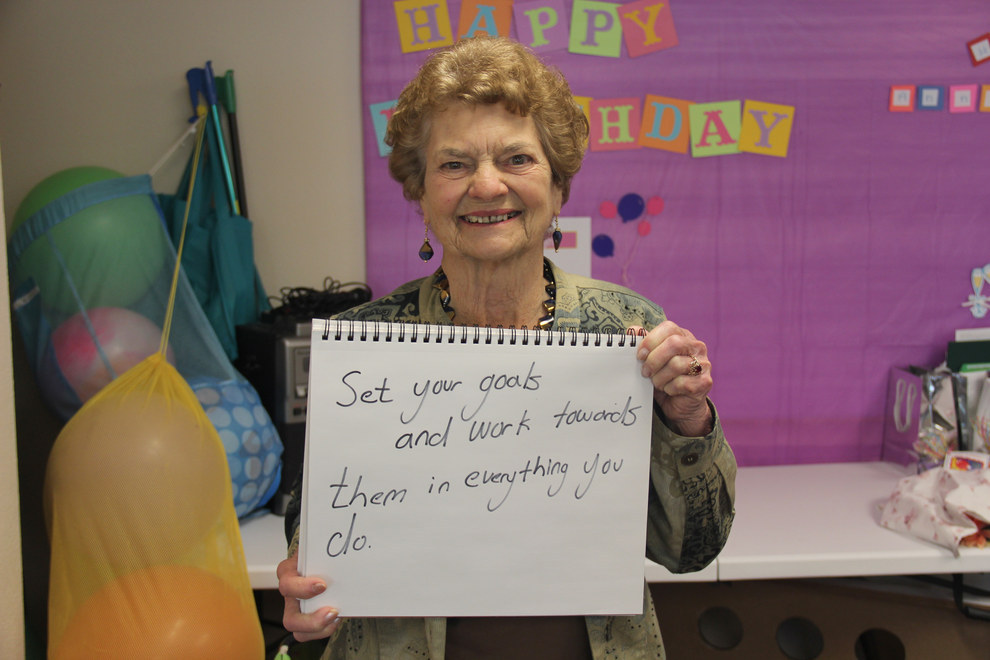 HAPPY
HDAY
Set your goals
and work towards
them in everything you
do.